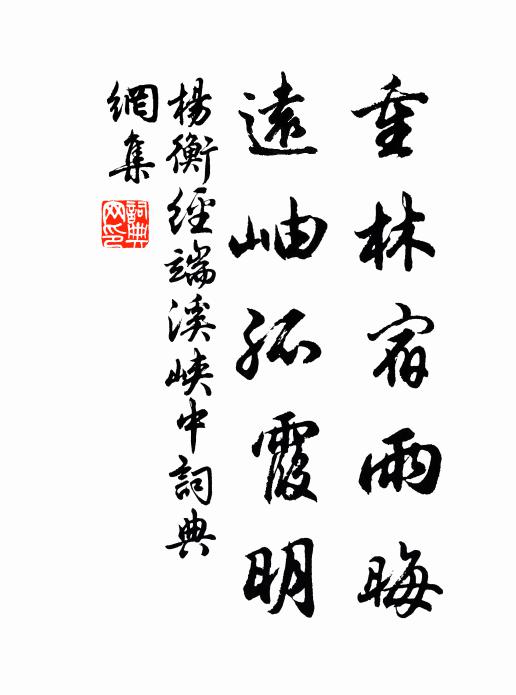 重林宿雨晦
遠岫孤霞明
楊衡經端溪峽中詞典
網集
詞典網印